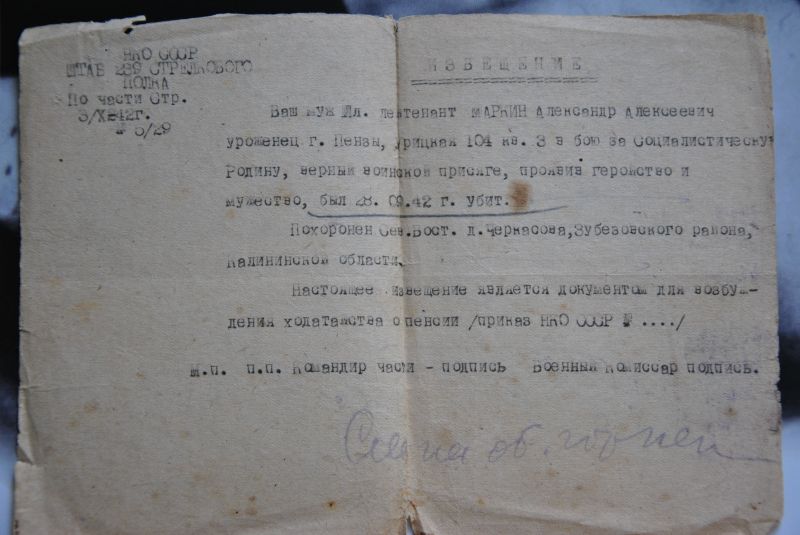 НКО СССР
ШТАБ 239 СТРЕЛКОВОГО
ПОЛКА
По части Стр.
3/Х-42г.
№ 5/29
ИЗВЕЩЕНИЕ
Ваш муж Мл. лейтенант МАРКИН Александр Алексеевич
уроженец г. Пензы, урицкая 104 кв. 3 в бою за Социалистическую
Родину, верный воинской присяге, проявив геройство и
мужество, был 28. 09.42 г. убит.
Похоронен Сев.Вост. д.Черкасова,Зубезовского района,
Калининской области.
Настоящее извещение является документом для возбуж-
дения ходатайства о пенсии /приказ НКО СССР № ..../
М.п. п.п. Командир части - подпись Военный Комиссар подпись.